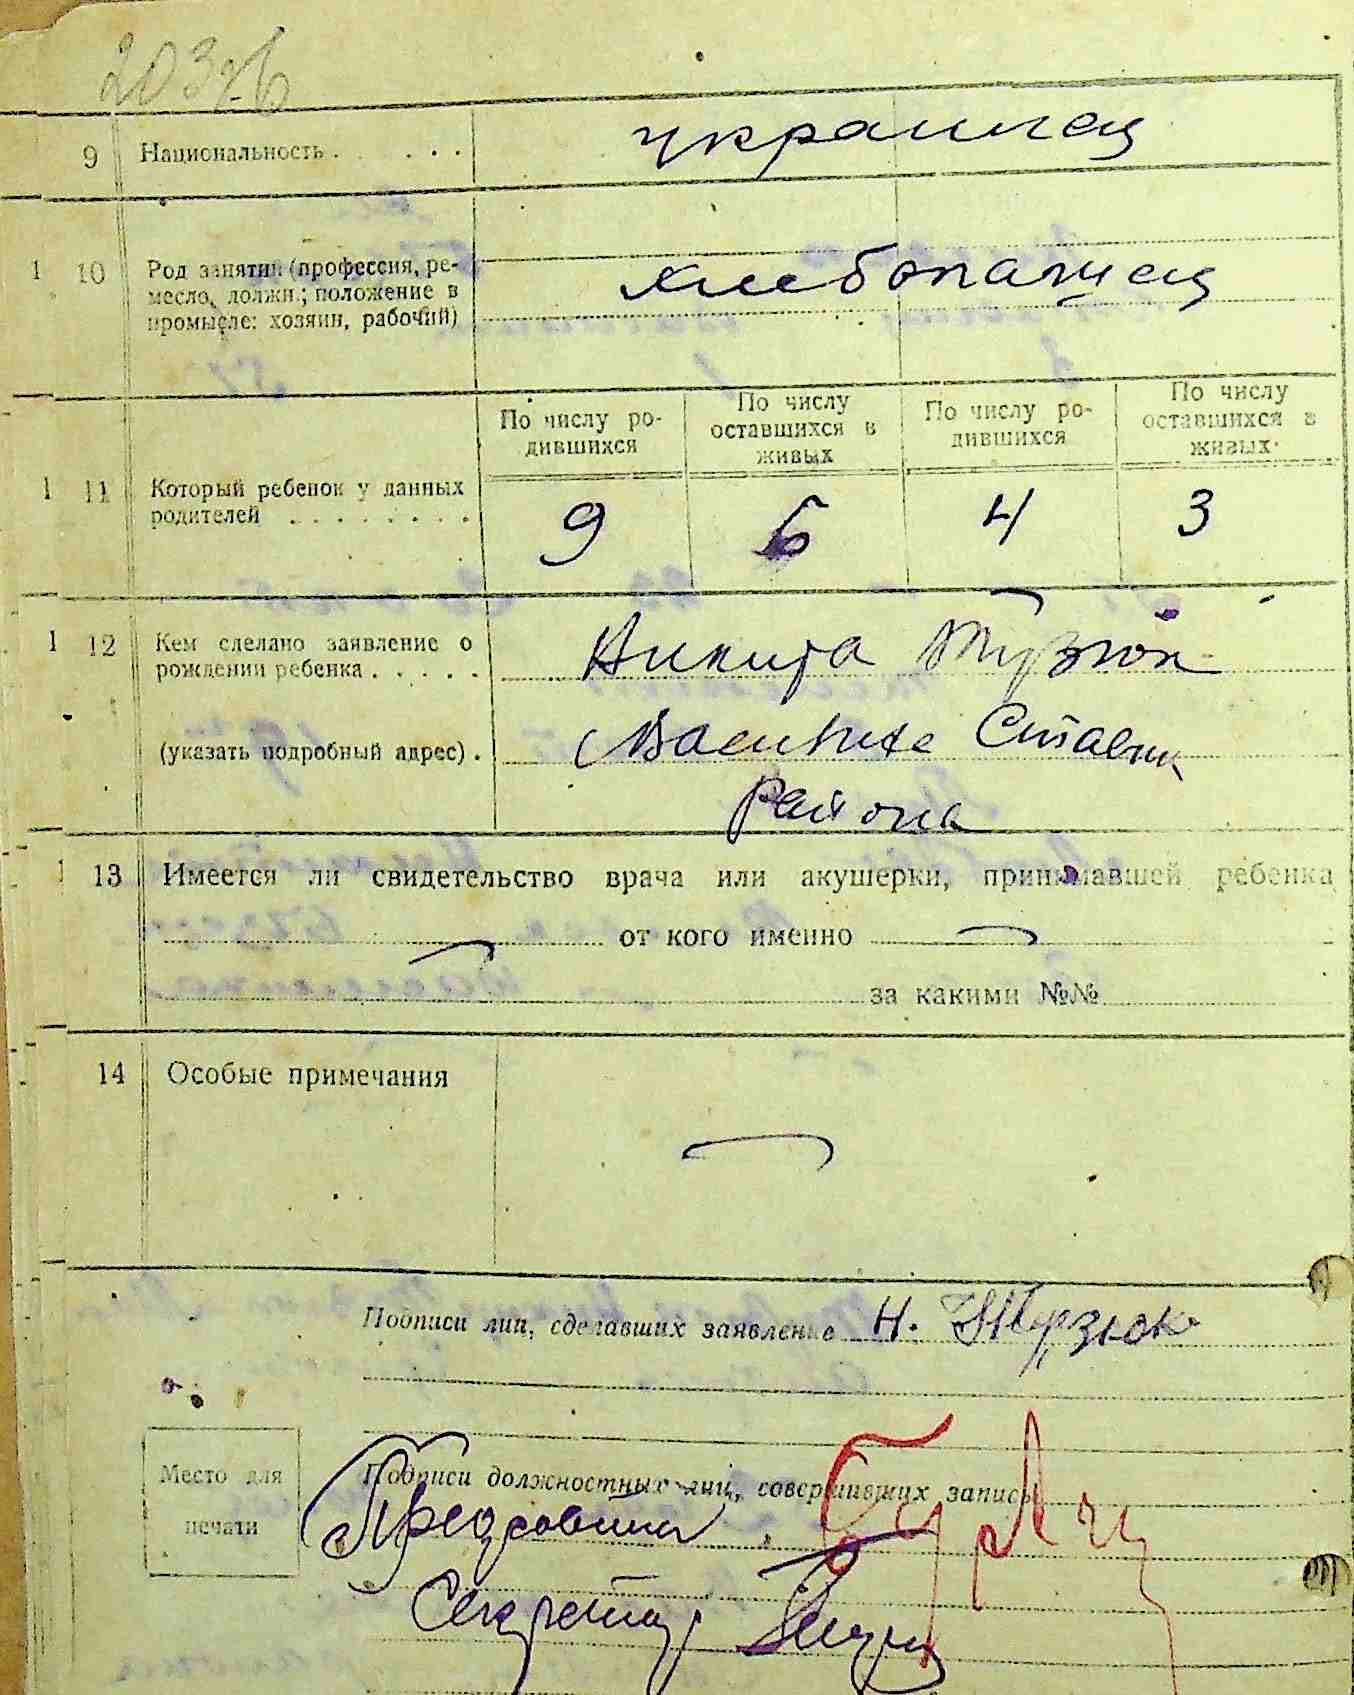 9 Национальность . . . . . . украинец
1 10 Род занятий (профессия, ре-
месло, должн.; положение в
промысле: хозяин, рабочий)
хлебопашец
По числу ро-
дившихся
По числу
оставшихся в
живых
По числу ро-
дившихся
По числу
оставшихся в
живых
1 11 Который ребенок у данных
родителей . . . . . . . .
9 6 4 3
1 12 Кем сделано заявление о
рождении ребенка . . . . .
Никита
(указать подробный адрес) .
Района
1 13 Имеется ли свидетельство врача или акушерки, принимавшей ребенка
от кого именно
за какими №№
14 Особые примечания
Подписи лиц, сделавших заявление Н. Турзюк
Место для
печати
Подписи должностных лиц, совершивших запись
Секретар